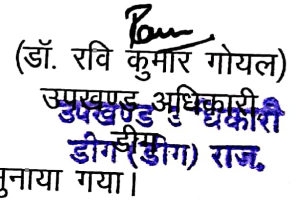 (डॉ. रवि कुमार गोयल)
उपखण्ड अधिकारी,
उपखण्ड अधिकारी
डीग
डीग (डीग) राज.
नुनाया गया।